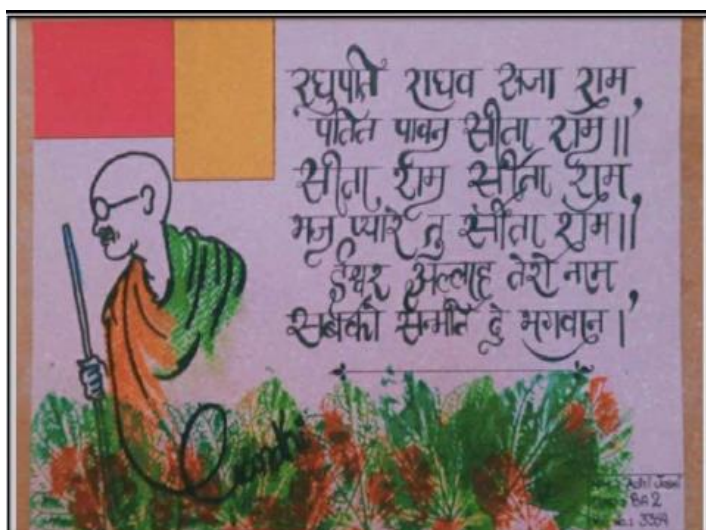 रघुपति राघव राजा राम,
पतित पावन सीता राम॥
सीता राम सीता राम,
भज प्यारे तु सीता राम॥
ईश्वर अल्लाह तेरो नाम,
सबको सन्मति दे भगवान।
Gandhi
BA 2